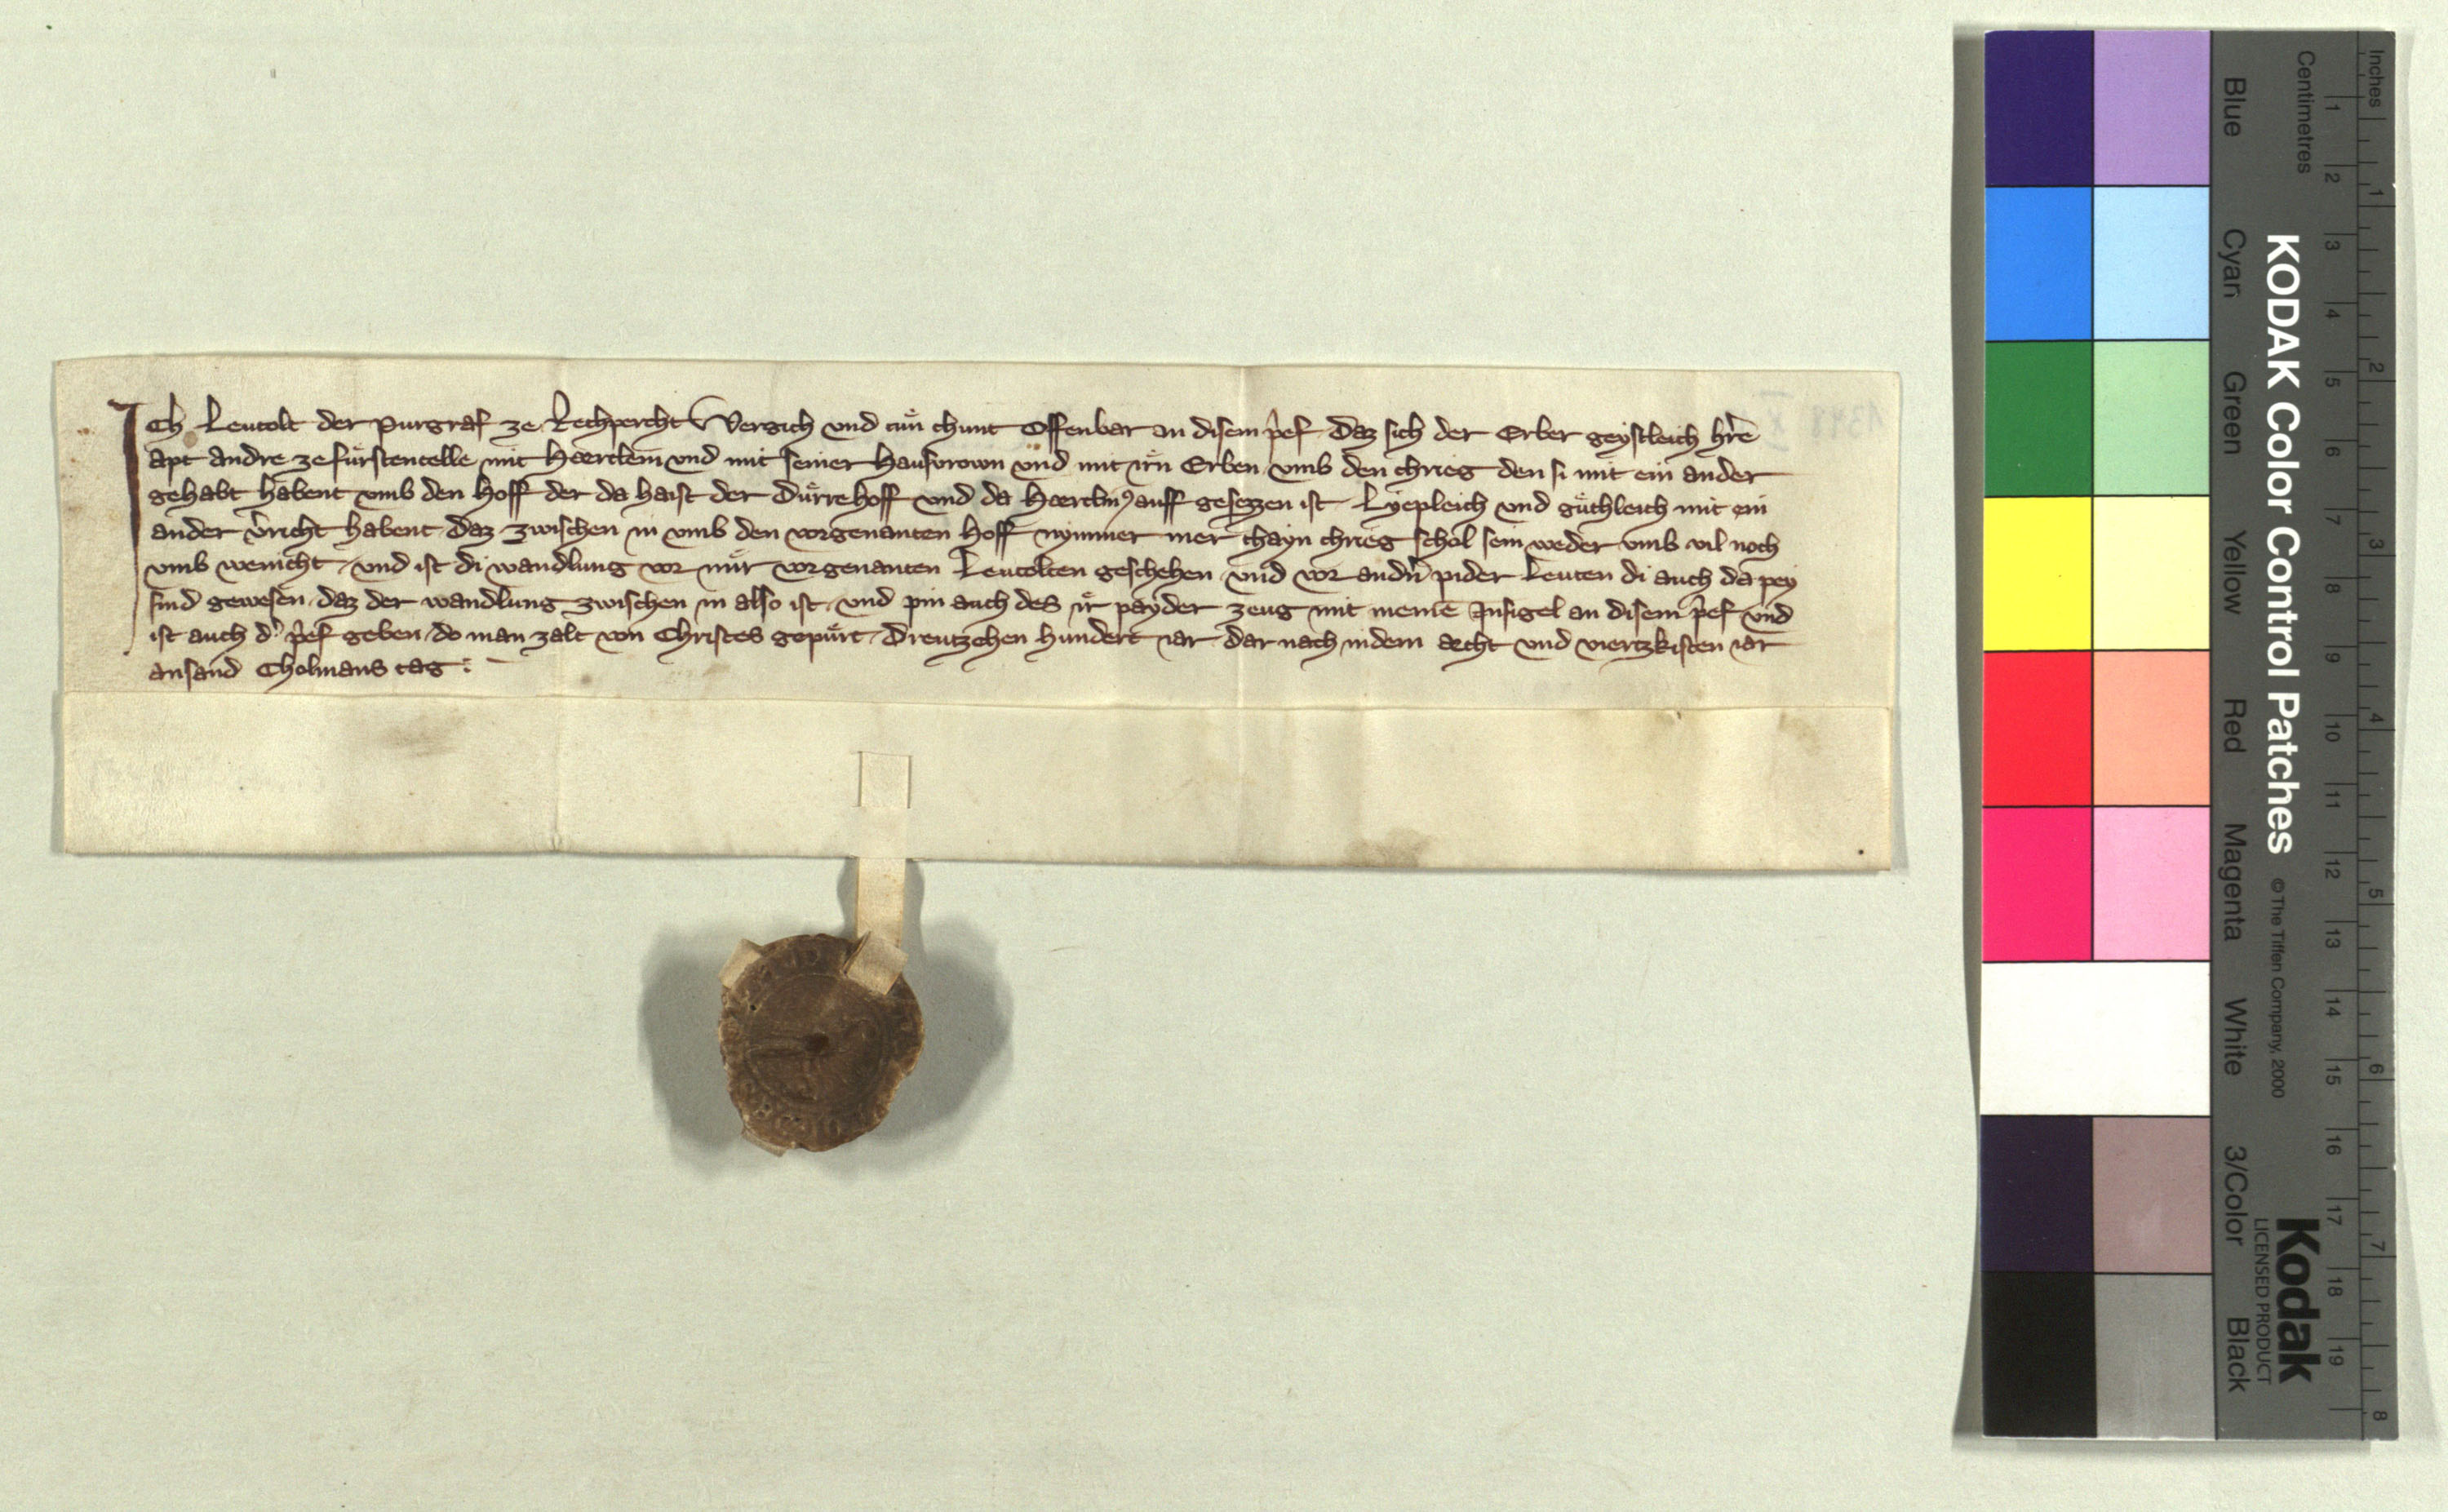 Ich Leutolt der purgraf ze Rechpercht Vergich vnd tuͤn chunt Offenbar an disem p̂ef daz sich der Erber geystleich hr̄e
apt andre ze fuͤrstencelle mit Haertlein vnd mit seiner Hausvrown vnd mit irn̄ Erben vmb den chrieg den si mit ein ander
gehabt habent vmb den Hoff der da haist der Duͤrrehoff vnd da Haertlin auff gesezzen ist Lyepleich vnd guͤthleich mit ein
ander v̄richt habent daz zwischen in vmb den vorgenanten Hoff nymmer mer chayn chrieg schol sein weder vmb vil noch
vmb wenicht vnd ist di wandlung vor miͤr vorgenanten Leutolten geschehen vnd vor andn̄ pider Leuten di auch da pey
sind gewesen daz der wandlung zwischen in also ist vnd pin auch des iͤr payder zeug mit meinē Insigel an disem p̂ef vnd
ist auch d' p̂ef geben do man zalt von Christes gepuͤrt dreutzehen hundert iar dar nach in dem aecht vnd viertzkisten iar
an sand Cholmans tag
1348
KODAK Color Control Patches
© The Tiffen Company, 2000
Kodak
LICENSED PRODUCT
Inches 1 2 3 4 5 6 7 8
Centimetres 1 2 3 4 5 6 7 8 9 10 11 12 13 14 15 16 17 18 19
Blue Cyan Green Yellow Red Magenta White 3/Color Black